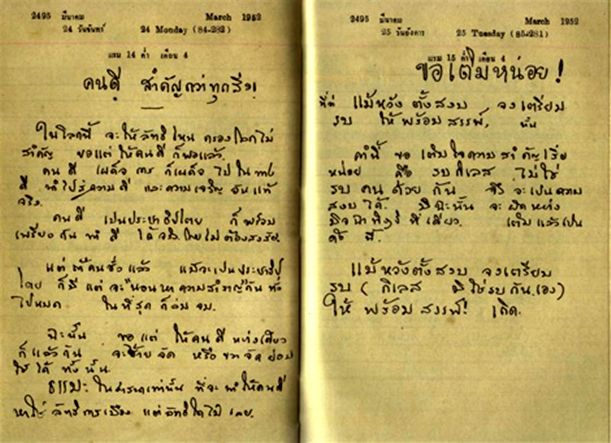 2495 มีนาคม March 1952
24 วันจันทร์ 24 Monday (84-282)
แรม 14 ค่ำ เดือน 4
คนดี สำคัญกว่าทุกสิ่ง!
ในโลกนี้ จะให้ลัทธิไหน ครองโลกไม่
สำคัญ ขอแต่ให้คนดี ก็พอแล้ว,
คนดี เผด็จการ ก็เผด็จ ไปในทาง
ดี นำไปสู่ความดี และความเจริญ อันแท้
จริง.
คนดี เปนประชาธิปไตย ก็พร้อม
เพรียงกัน ทำดี ได้จริง โดยไม่ต้องสงสัย.
แต่ถ้าคนชั่วแล้ว แม้จะเปนประชาธิป
ไตย ก็มีแต่จะ "นอนหาความสำราญ" กัน ทั่ว
ไปหมด ในที่สุด ก็ล่มจม.
ฉะนั้น ขอแต่ ให้คนดี อย่างเดียว
ก็แล้วกัน จะซ้ายจัด หรือ ขวาจัด ย่อม
ใช้ได้ ทั้งนั้น.
ธรรมะ เท่านั้น ที่จะ ทำให้คนดี
หาใช่ ลัทธิการเมือง แต่ลัทธิใดไม่ เลย.
2495 มีนาคม March 1952
25 วันอังคาร 25 Tuesday (85-281)
แรม 15 ค่ำ เดือน 4
ขอเติมหน่อย!
ที่ว่า แม้หวัง ตั้งสงบ จงเตรียม
รบ ให้พร้อม สรรพ์, นั้น
คำนี้ ขอ เติมใจความสำคัญ เสีย
หน่อย คือ รบกิเลส ไม่ใช่
รบ คน ด้วยกัน จึง จะเปนความ
สงบ ได้. มิฉะนั้น จะผิดอย่าง
ที่เดียว. เติมแล้วเปน
ดัง นี้.
แม้หวังตั้งสงบ จงเตรียม
รบ (กิเลส มิใช่รบกันเอง)
ให้ พร้อมสรรพ์! เถิด.